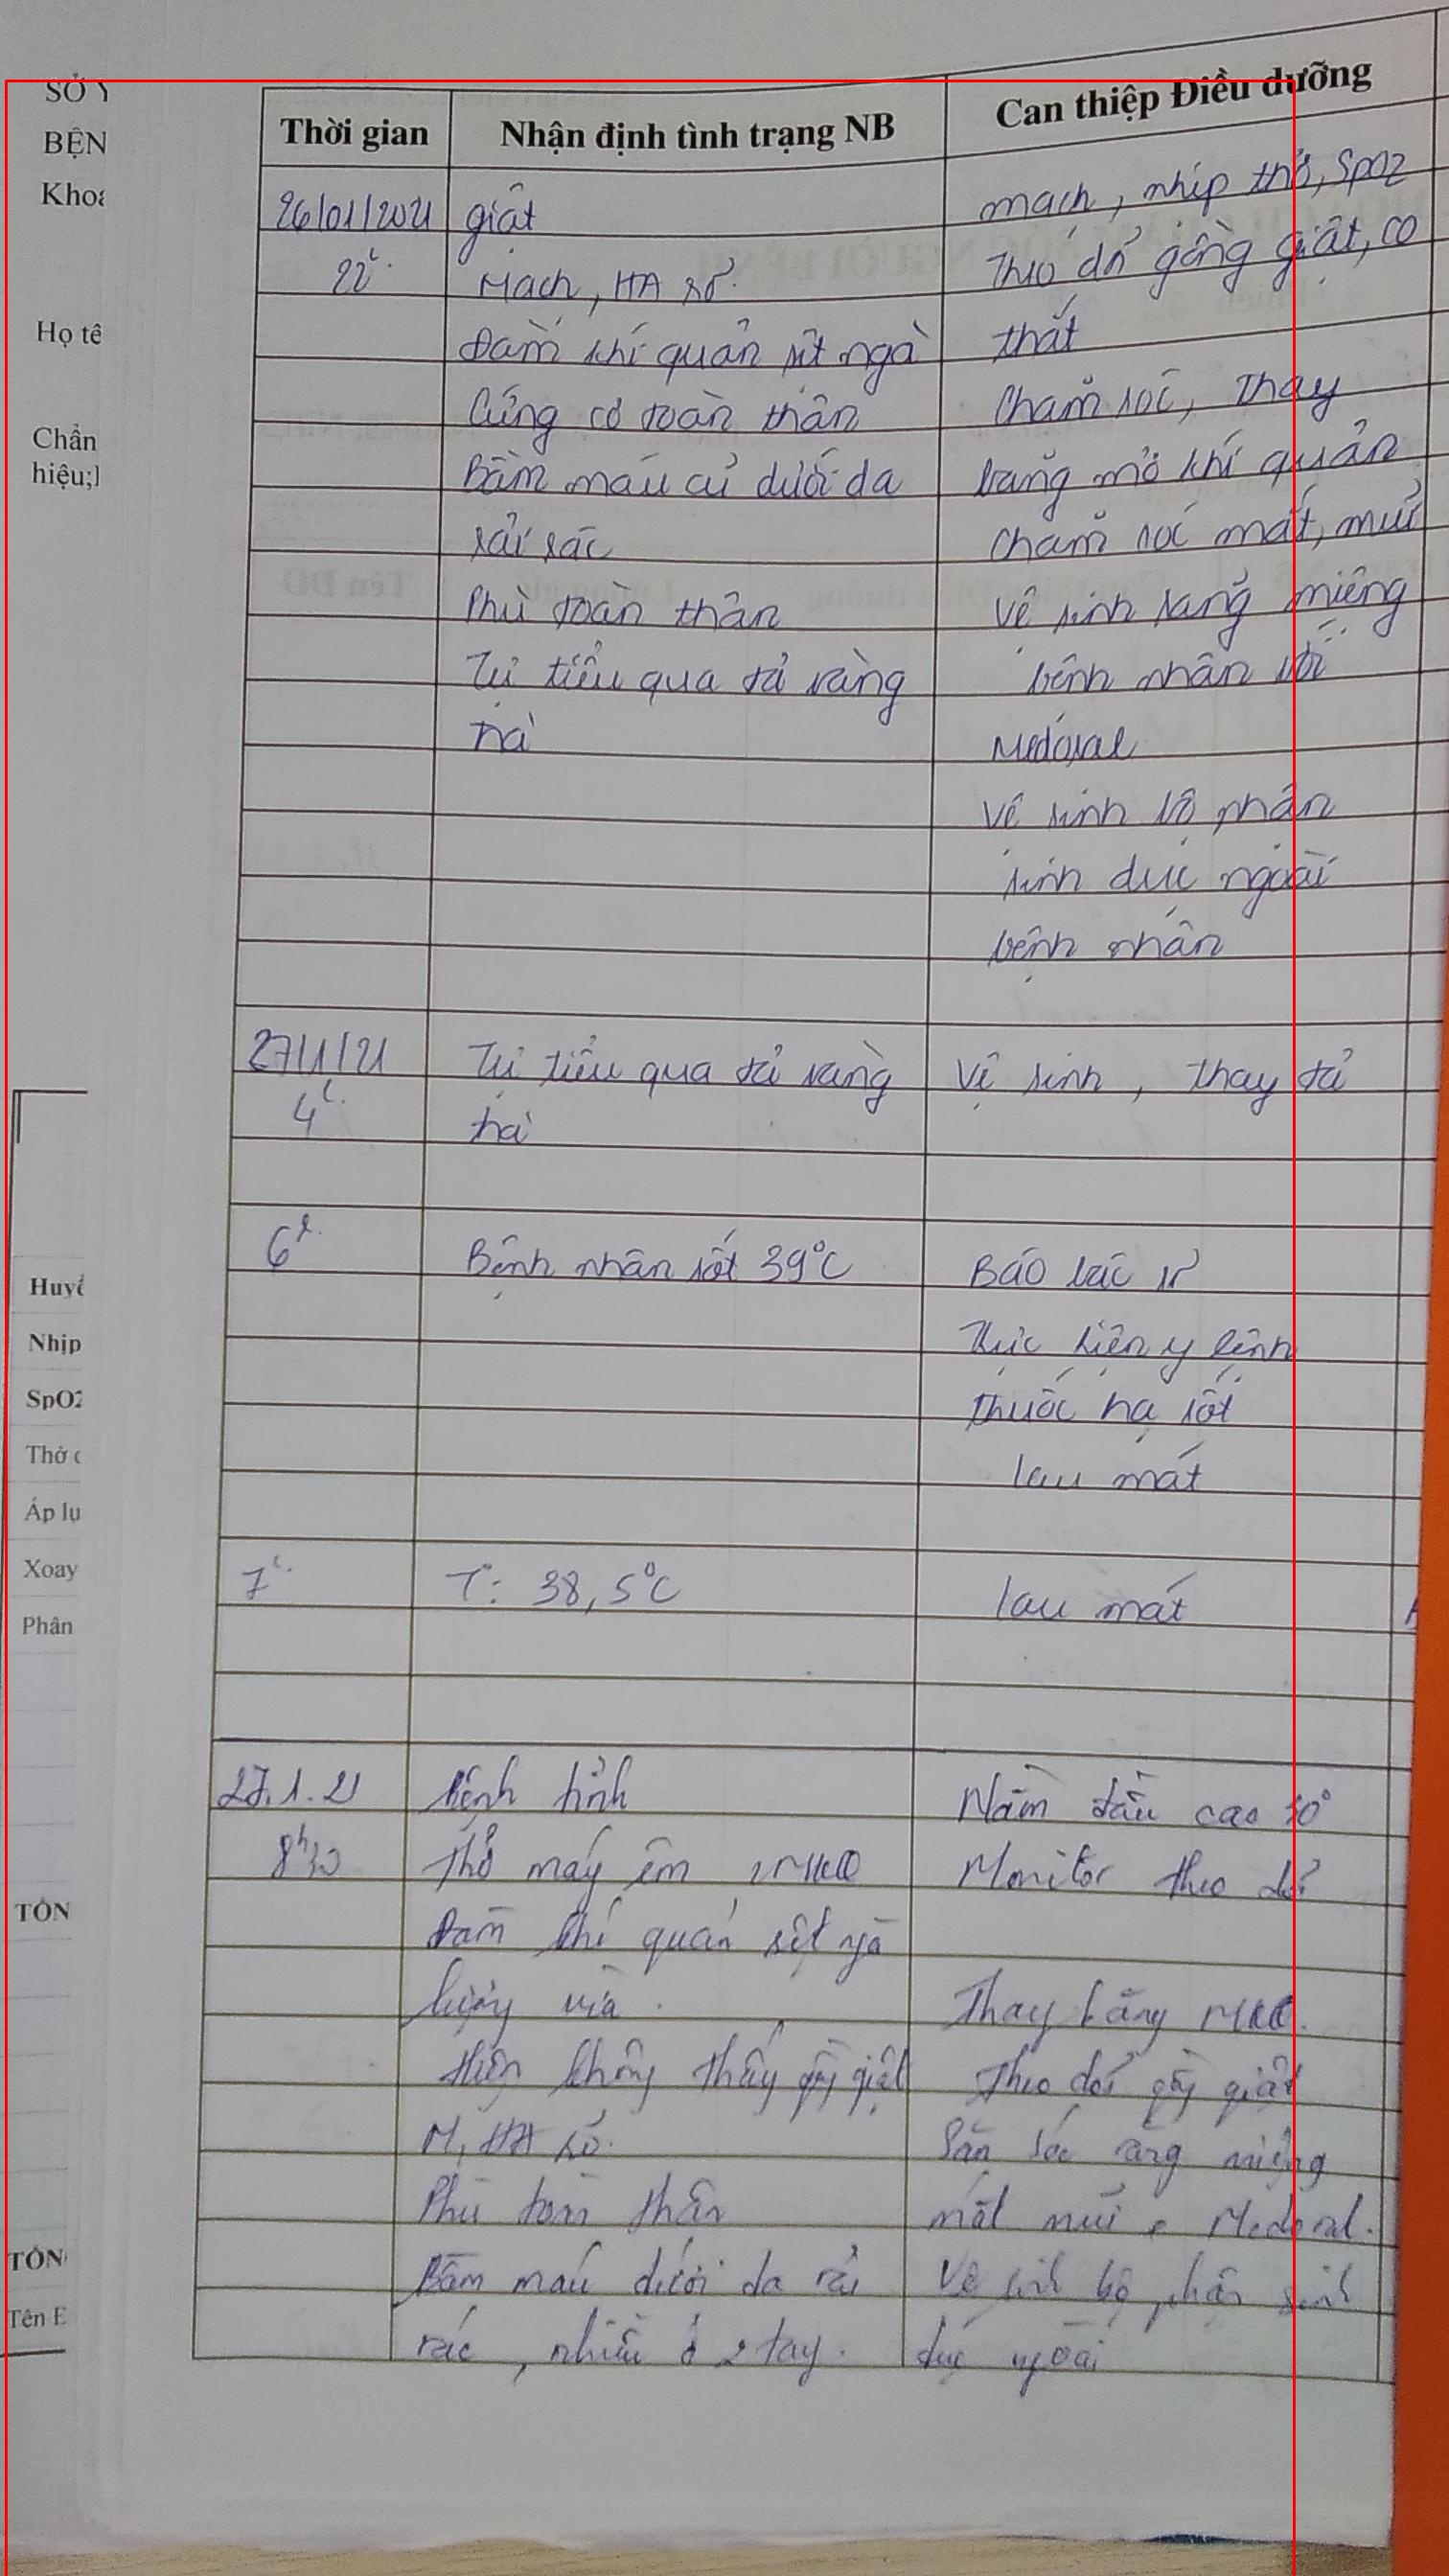 SỞ Y
BỆN
Khoa
Họ tê
Chẩn
hiệu;
Huyế
Nhịp
SpO2
Thở
Áp lụ
Xoay
Phân
TỔN
TỔN
Tên
Thời gian | Nhận định tình trạng NB | Can thiệp Điều dưỡng
26/01/2021 | giật | mạch, nhịp thở, SpO2
22h | Mạch, HA sơ | Theo dõi gồng giật, co
Đàm khí quản sệt ngà | thắt
Cứng cơ toàn thân | Chăm sóc, thay
Bầm máu cũ dưới da | băng mở khí quản
rải rác | chăm sóc mắt, mũi
Phù toàn thân | vệ sinh răng miệng
Tự tiểu qua tả vàng | bệnh nhân với
trà | Medoral
vệ sinh bộ phận
sinh dục ngoài
bệnh nhân
27/1/21 | Tự tiểu qua tả vàng | vệ sinh, thay tả
4h | trà
6h | Bệnh nhân sốt 39°C | Báo bác sĩ
Thực hiện y lệnh
thuốc hạ sốt
lau mát
7h | T°: 38,5°C | lau mát
27.1.21 | Bệnh tỉnh | Nằm đầu cao 30°
8h30 | Thở máy êm MKQ | Monitor theo dõi
Đàm khí quản sệt ngà
lượng vừa. | Thay băng MKQ.
Hiện không thấy gồng giật | Theo dõi gồng giật
M, HA | Săn sóc răng miệng
Phù toàn thân | mắt mũi Medoral.
Bầm máu dưới da rải | Vệ sinh bộ phận sinh
rác, nhiều ở 2 tay. | dục ngoài